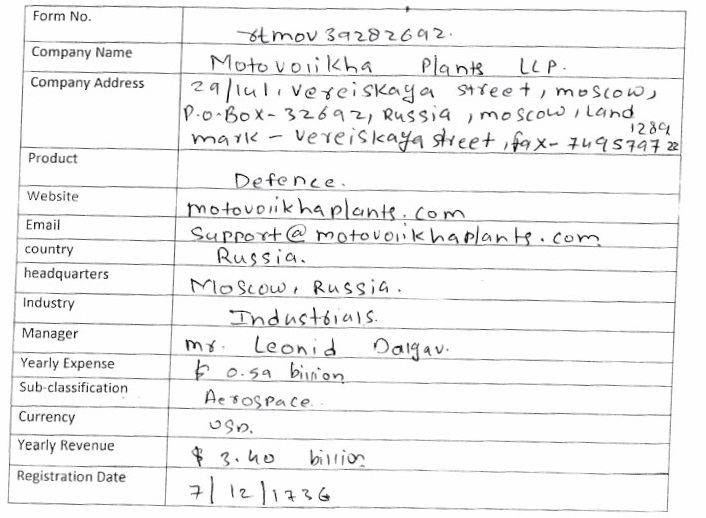 Form No. stmov39282692.
Company Name Motovoiikha Plants LLP.
Company Address 29/141, vereiskaya street, moscow,
P.O.Box-32692, Russia, moscow, Land
mark - vereiskaya street, fax- 7495797 1289
22
Product Defence.
Website motovoiikhaplants.com
Email support@motovoiikhaplants.com
country Russia.
headquarters Moscow, Russia.
Industry Industrials.
Manager mr. Leonid Dalgav.
Yearly Expense $ 0.59 billion
Sub-classification Aerospace.
Currency USD.
Yearly Revenue $ 3.40 billion
Registration Date 7/12/1736